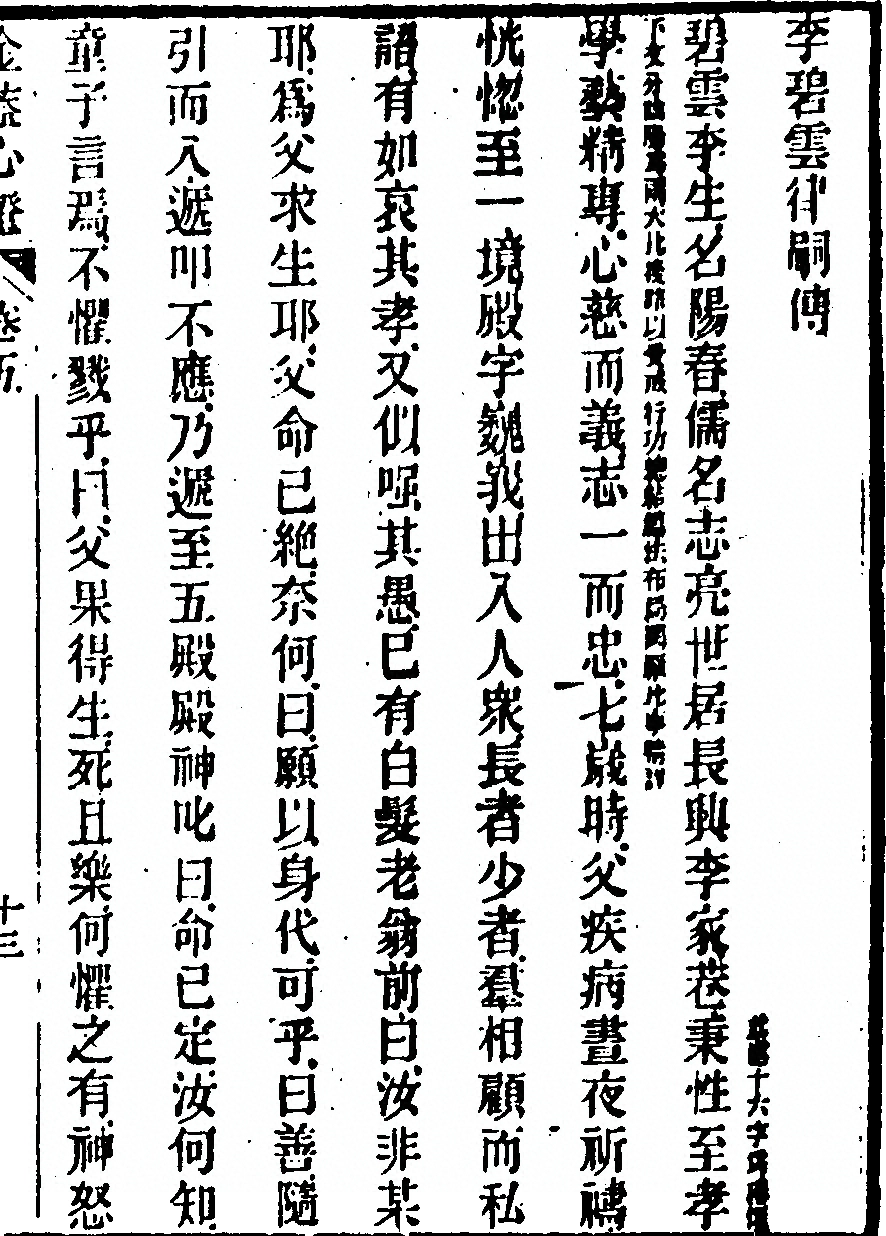 李碧雲律嗣傳
碧雲李生名陽春儒名志亮世居長興李家巷秉性至孝
學勤精專心慈而義志一而忠七歲時父疾病晝夜祈禱
恍惚至一境殿宇巍峩出入人衆長者少者羣相顧而私
語有如哀其孝又似唲其愚已有白髮老翁前曰汝非某
耶爲父求生耶父命已絶奈何曰願以身代可乎曰善隨
引而入遞叩不應乃遞至五殿殿神叱曰命已定汝何知
童子言焉不懼戮乎曰父果得生死且樂何懼之有神怒
金蓋心燈 卷五
十三